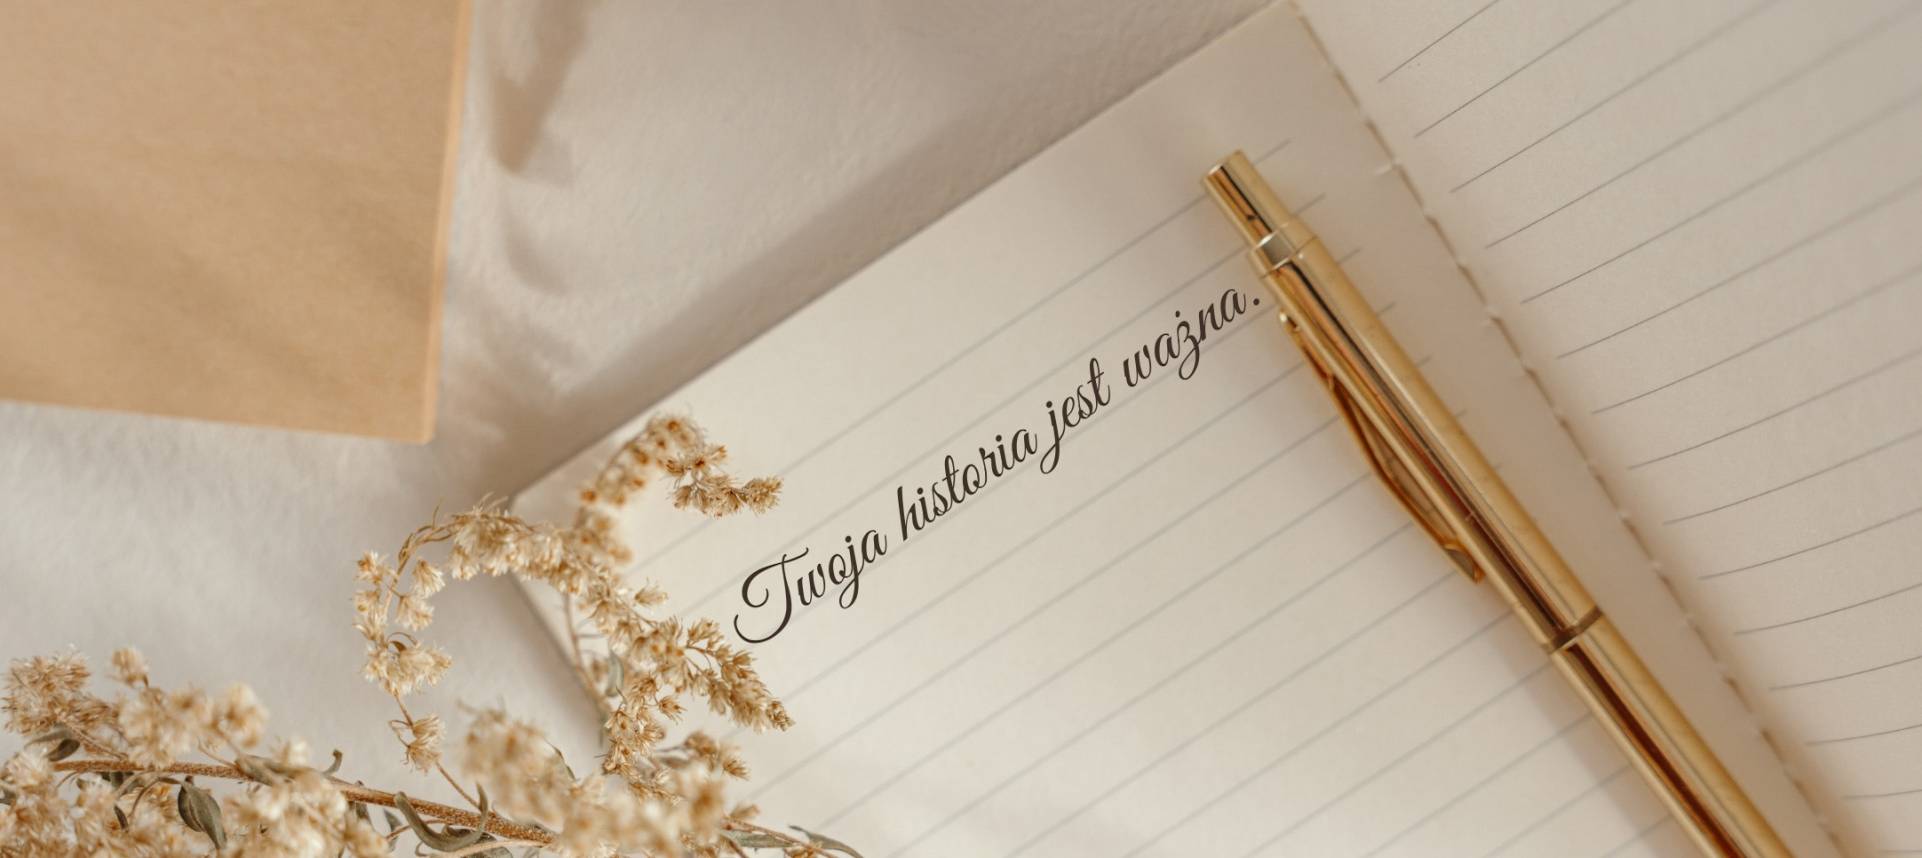 Twoja historia jest ważna.